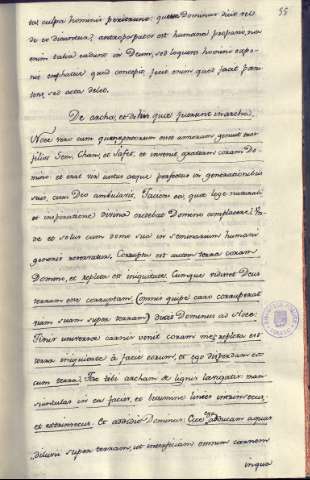 55
tas culpa hominis
de ex divinitus, anthropopatos est humano
enim talia cadunt in Deum, sed loquens homini
nit emphatice quod concepit, fuit enim quod facit
tens, sed actu delet.
De archa, et de his que fuerunt in archa.
Noe vero cum quingentorum esset annorum genuit tres
filios Sem, Cham, et Jafet, et invenit gratiam coram Do-
mino: et erat vir justus atque perfectus in generationibus
suis, cum Deo ambulavit. Faciens ea, que lege naturali
et inspiratione divina credebat Domino complacere: Un-
de et solus cum domo sua in seminarium humani
generis reservatus. Corrupta est autem terra coram
Domino, et repleta est iniquitate. Cumque videret Deus
terram esse corruptam (omnis quippe caro corruperat
viam suam super terram) dixit Dominus ad Noe:
Finis universe carnis venit coram me; repleta est
terra iniquitate a facie eorum, et ego disperdam eos
cum terra. Fac tibi archam de lignis levigatis: man-
siunculas in ea facies, et bitumine linies intrinsecus
et extrinsecus. Et addidit Dominus: Ecce ego adducam aquas
diluvii super terram, et interficiam omnem carnem
in qua